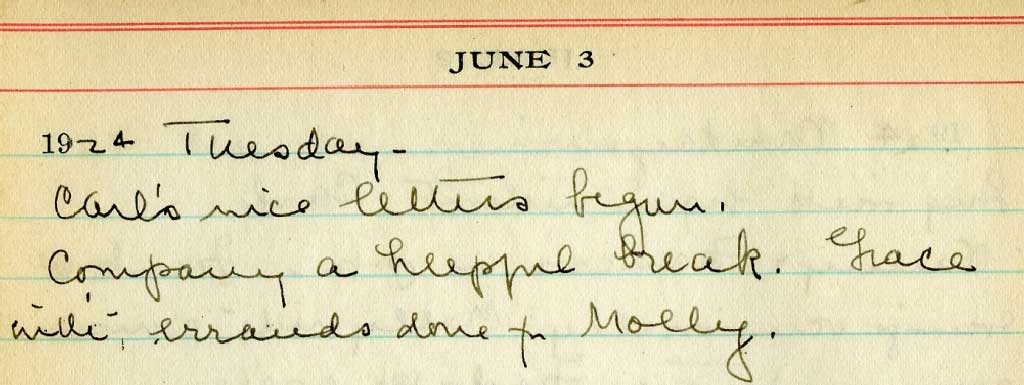 JUNE 3
1924 Tuesday-
Carl's nice letters begun.
Company a helpful break. Grace
errands done for Molly.